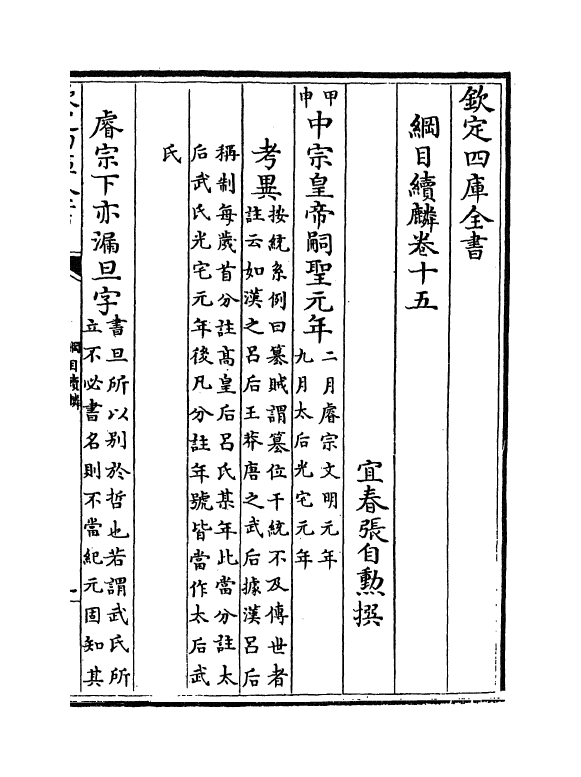 欽定四庫全書
綱目續麟卷十五
宜春張自勲撰
甲申
中宗皇帝嗣聖元年
二月睿宗文明元年
九月太后光宅元年
考異
按統系例曰簒賊謂簒位干統不及傳世者
註云如漢之呂后王莽唐之武后據漢呂后
稱制每歲首分註髙皇后呂氏某年此當分註太
后武氏光宅元年後凡分註年號皆當作太后武
氏
睿宗下亦漏旦字
書旦所以别於哲也若謂武氏所
立不必書名則不當紀元固知其
綱目續麟